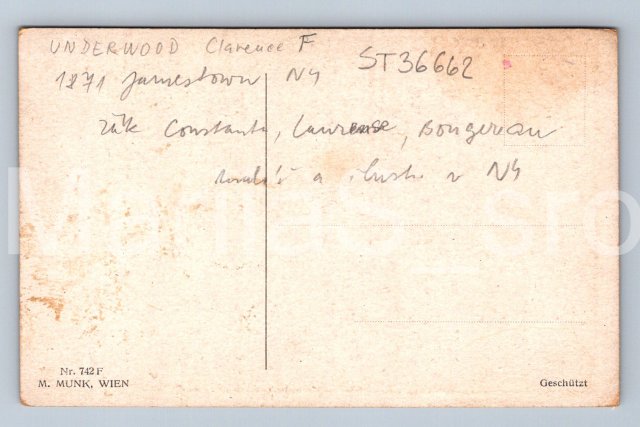 UNDERWOOD Clarence F
ST36662
1871 Jamestown NY
žák Constanta, Laurense, Bougereau
a ilustr. v NY
Nr. 742 F
M. MUNK, WIEN
Geschützt